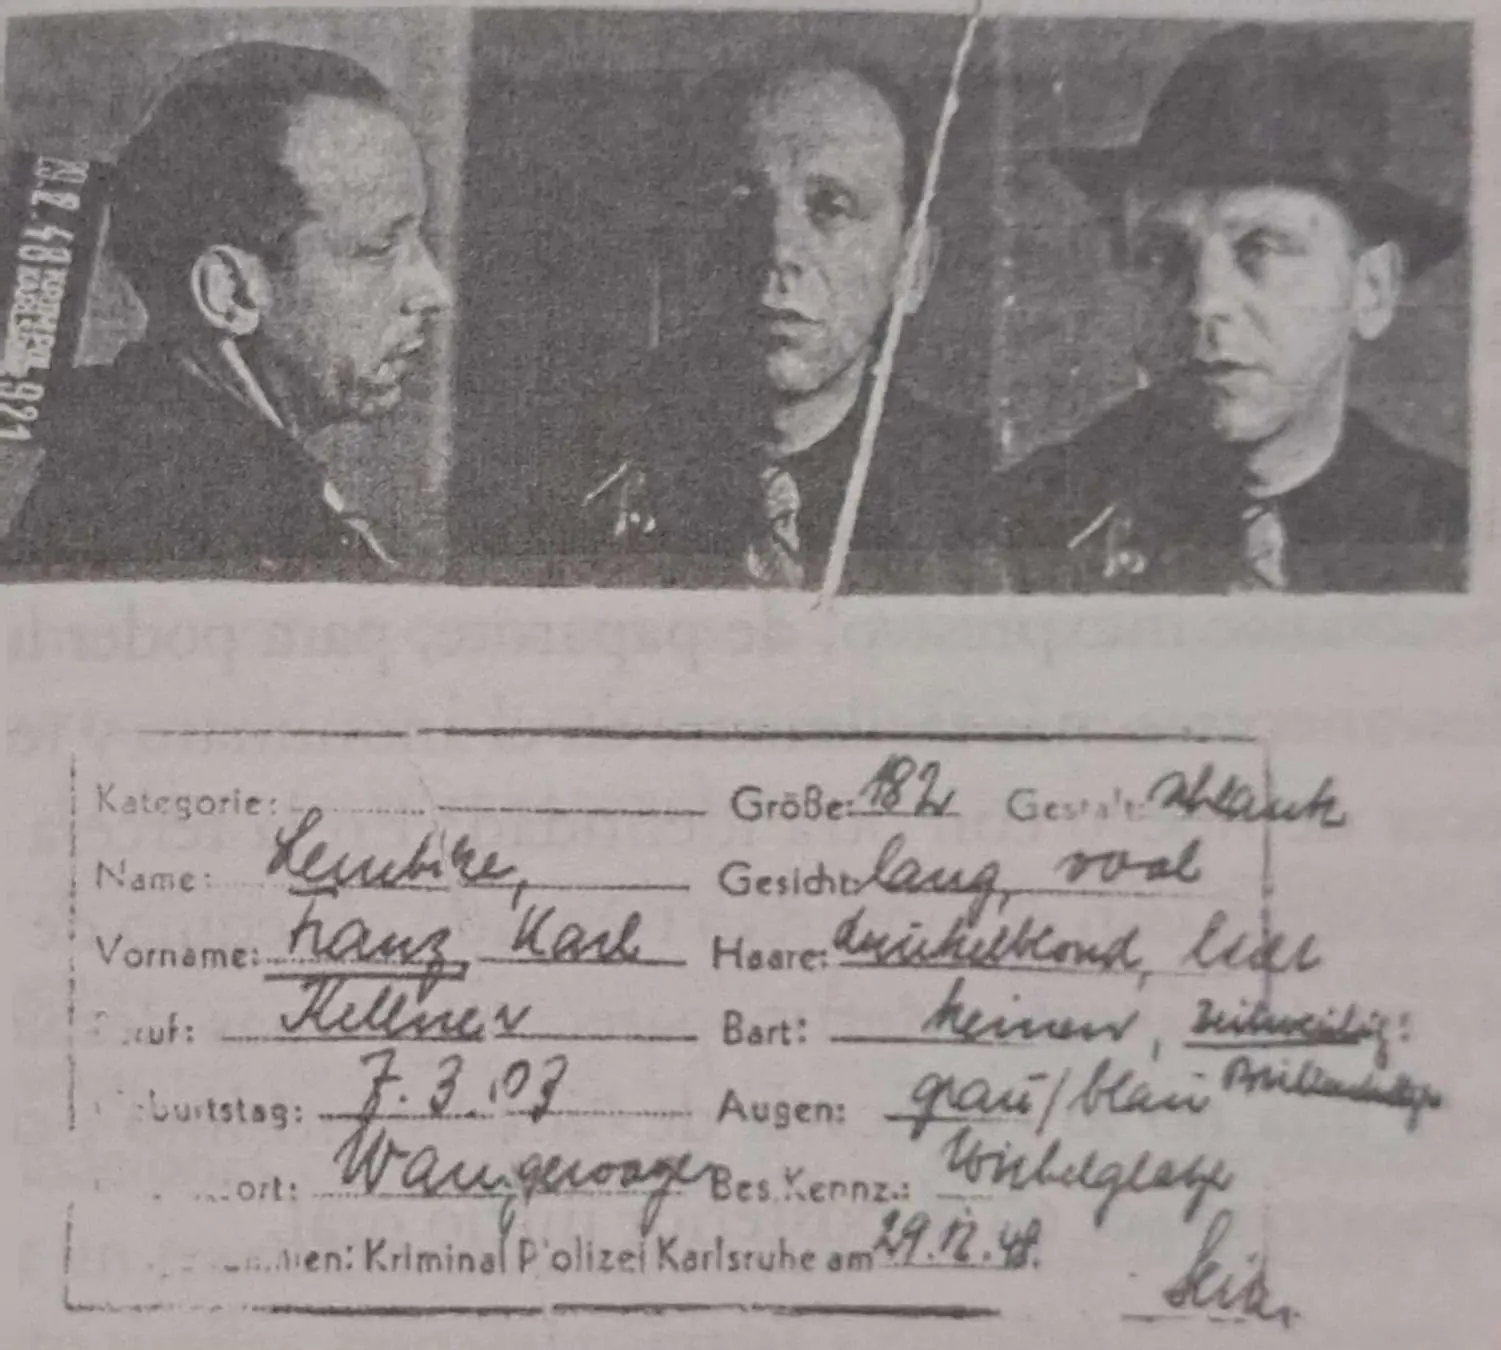 921
Kategorie: Größe: 182 Gestalt: schlank
Name: Lembike, Gesicht: lang, oval
Vorname: Franz, Karl Haare: dunkelblond, licht
ruf: Kellner Bart: keinen, zeitweilig:
burtstag: 7.3.03 Augen: grau/blau Brillenträger
ort: Wangerooge Bes. Kennz.: Wirbelglatze
men: Kriminal Polizei Karlsruhe am 29.12.48.